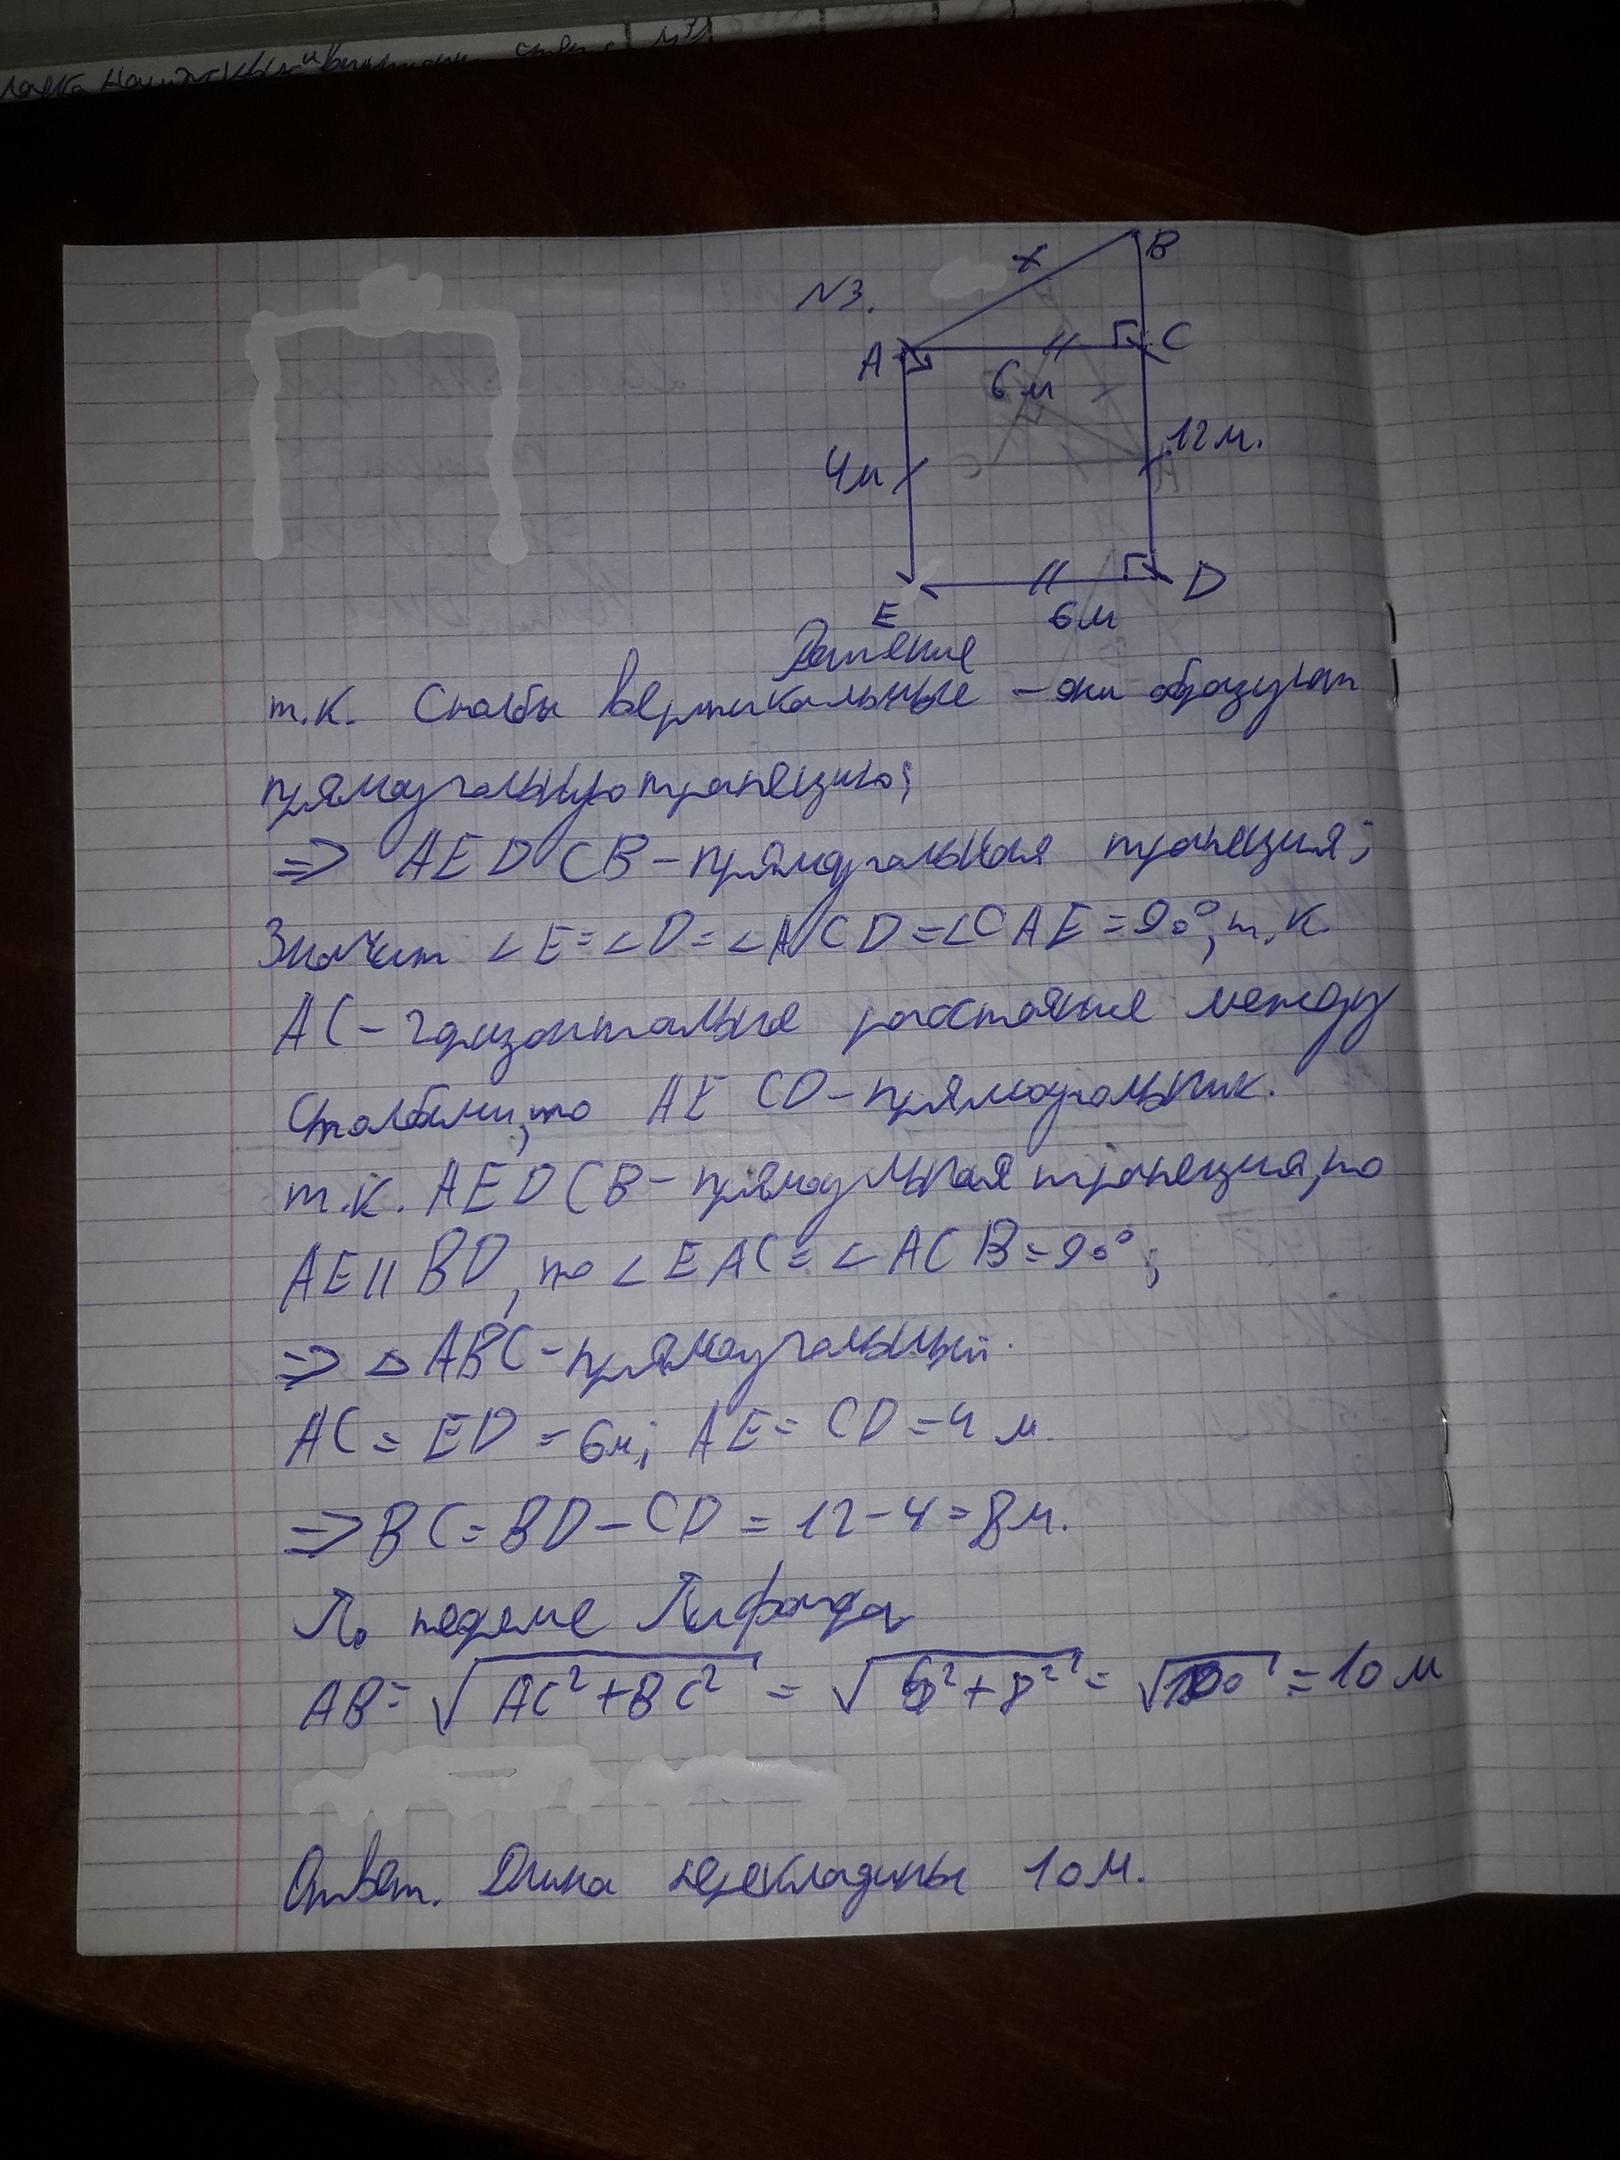 N3.
B
x
A
C
6м
12м.
4м
E
D
6м
Решение
т.к. Столбы вертикальные - они образуют
прямоугольную трапецию;
=> AEDCB - прямоугольная трапеция;
Значит ∠E=∠D=∠ACD=∠CAE=90°, т.к.
AC - горизонтальные расстояние между
столбами, то AECD - прямоугольник.
т.к. AEDCB - прямоугольная трапеция, то
AE || BD, то ∠EAC=∠ACB=90°;
=> △ABC - прямоугольный.
AC = ED = 6м; AE = CD = 4 м.
=> BC = BD - CD = 12 - 4 = 8м.
По теореме Пифагора
AB = √AC²+BC² = √6²+8² = √100 = 10 м
Ответ. Длина перекладины 10м.